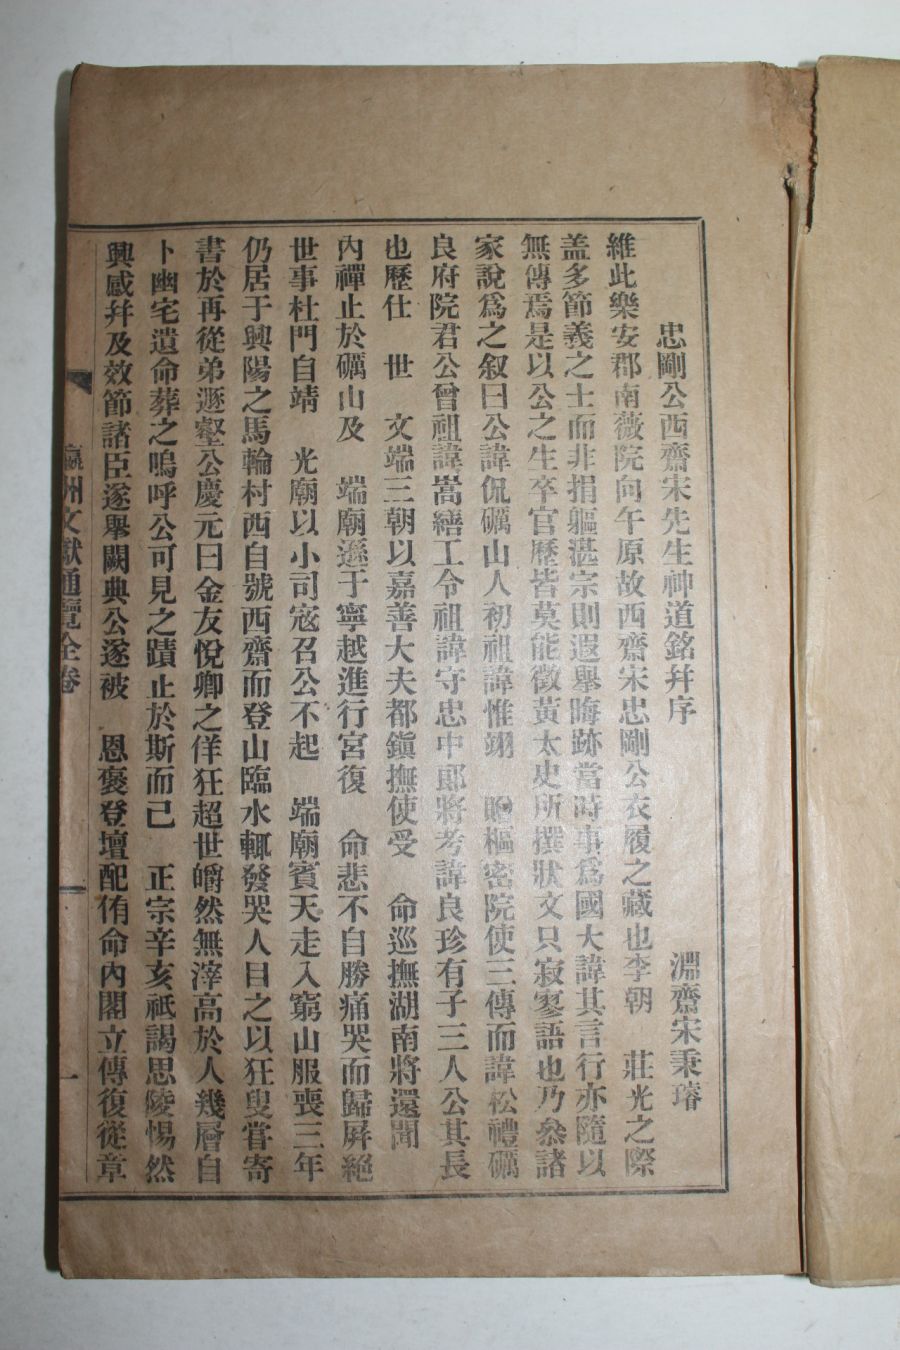 忠剛公西齋宋先生神道銘并序
淵齋宋秉璿
維此樂安郡南薇院向午原故西齋宋忠剛公衣履之藏也李朝 莊光之際
盖多節義之士而非捐軀湛宗則遐擧晦跡當時事爲國大諱其言行亦隨以
無傳焉是以公之生卒官歷皆莫能徵黃太史所撰狀文只寂寥語也乃叅諸
家說爲之叙曰公諱侃礪山人初祖諱惟翊 贈樞密院使三傳而諱松禮礪
良府院君公曾祖諱嵩繕工令祖諱守忠中郞將考諱良珍有子三人公其長
也歷仕 世 文端三朝以嘉善大夫都鎭撫使受 命巡撫湖南將還聞
內禪止於礪山及 端廟遜于寧越進行宮復 命悲不自勝痛哭而歸屛絕
世事杜門自靖 光廟以小司寇召公不起 端廟賓天走入窮山服喪三年
仍居于興陽之馬輪村西自號西齋而登山臨水輒發哭人目之以狂叟嘗寄
書於再從弟遯壑公慶元曰金友悅卿之佯狂超世皭然無滓高於人幾層自
卜幽宅遺命葬之嗚呼公可見之蹟止於斯而已 正宗辛亥祇謁思陵惕然
興感并及效節諸臣遂擧闕典公遂被 恩褒登壇配侑命內閣立傳復從章
瀛州文獻通覽全卷
一